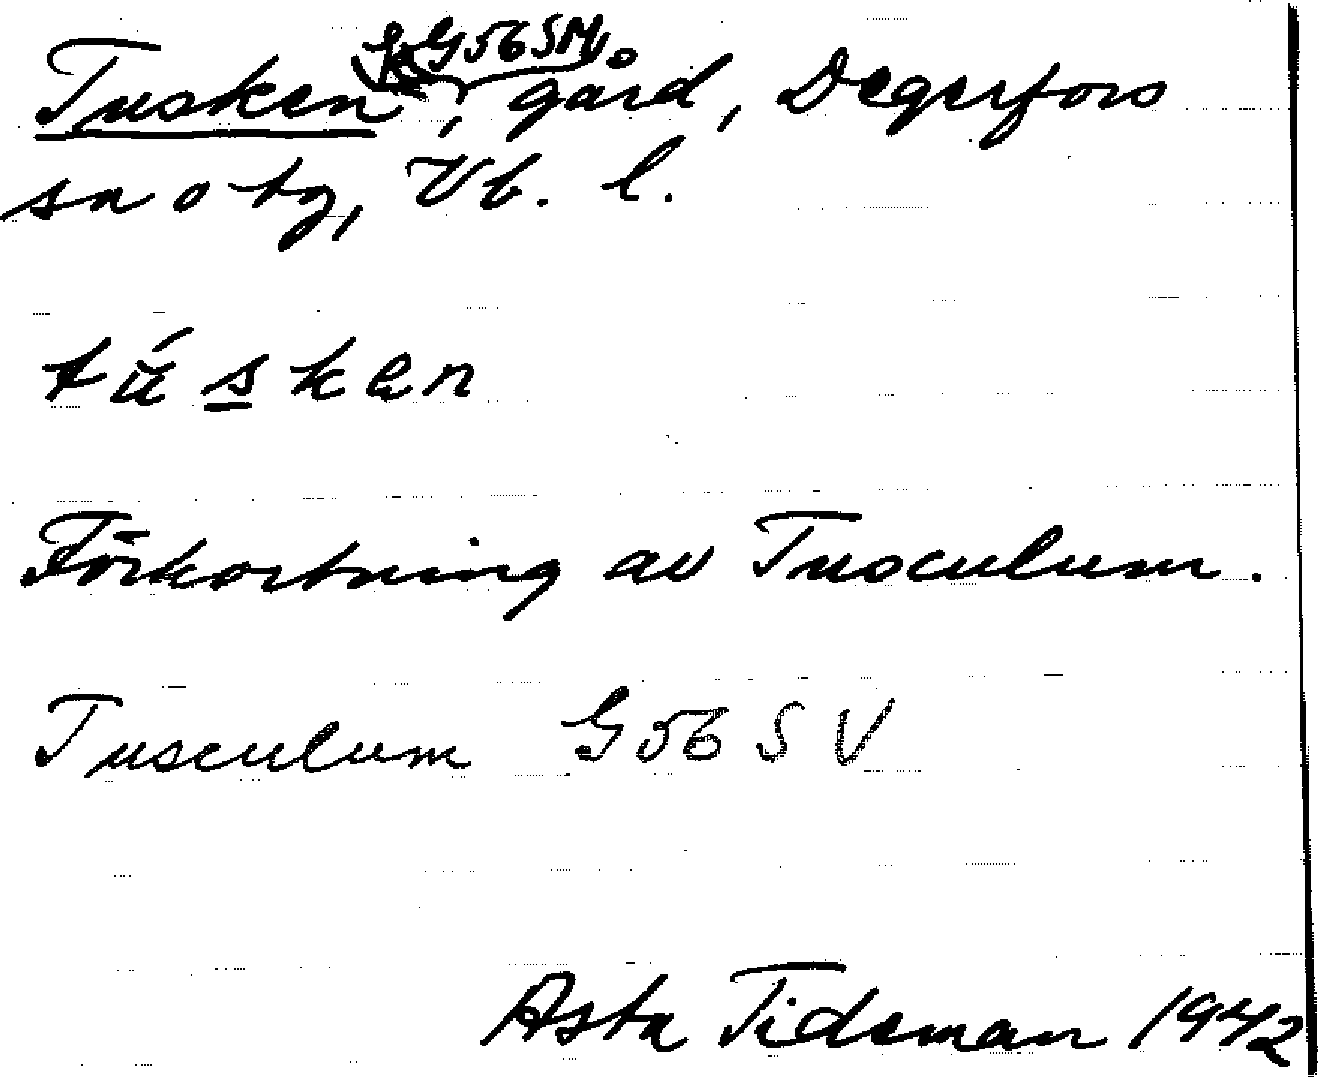 G56 SM
Tusken, gård, Degerfors
sn o tg, Vb. l.
túsken
Förkortning av Tusculum.
Tusculum G56 SV
Asta Tideman 1942